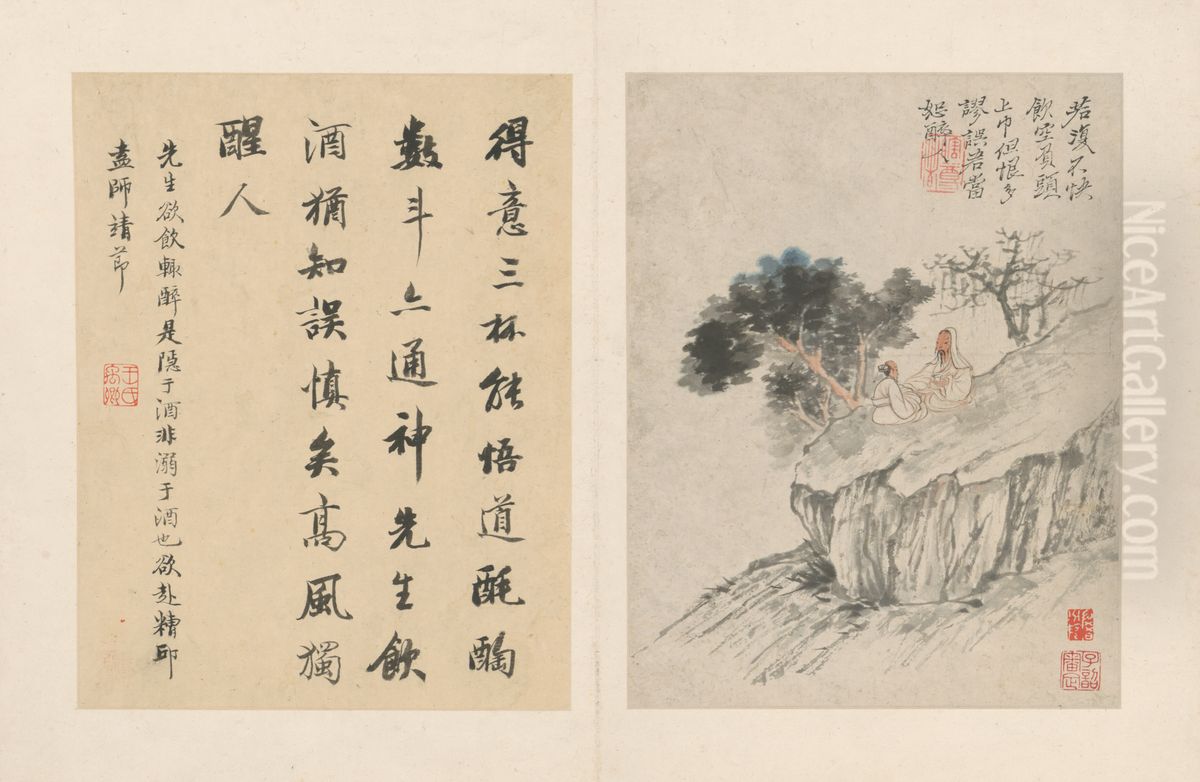 若復不快
飲空負頭
上巾但恨多
謬誤君當
恕醉人
得意三杯能悟道酕醄
數斗亦通神先生飲
酒猶知誤慎矣高風獨
醒人
先生欲飲輒醉是隱于酒非溺于酒也欲赴糟邱
盍師靖節
王氏
子韶
審定
NiceArtGallery.com